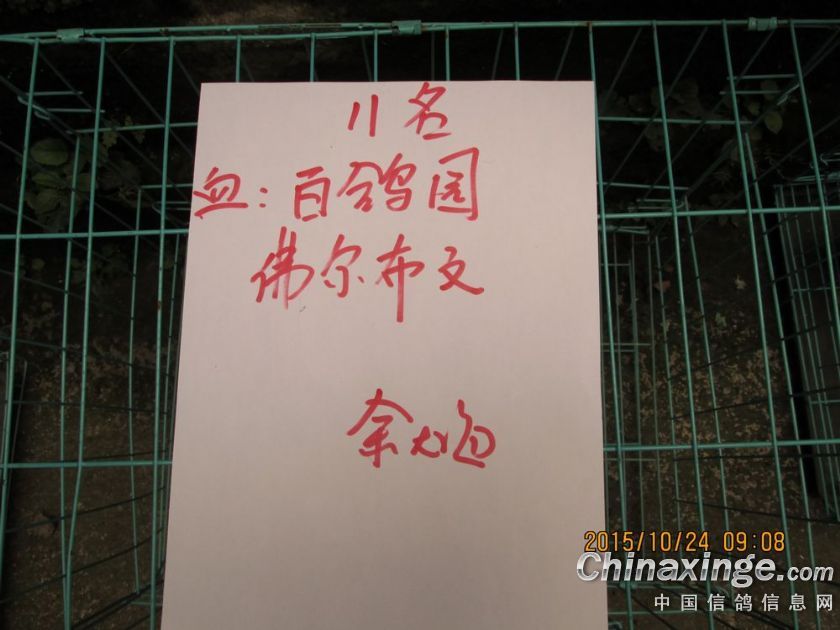 11名
血：百鸽园
佛尔布文
余
2015/10/24 09:08
Chinaxinge.com
中国信鸽信息网